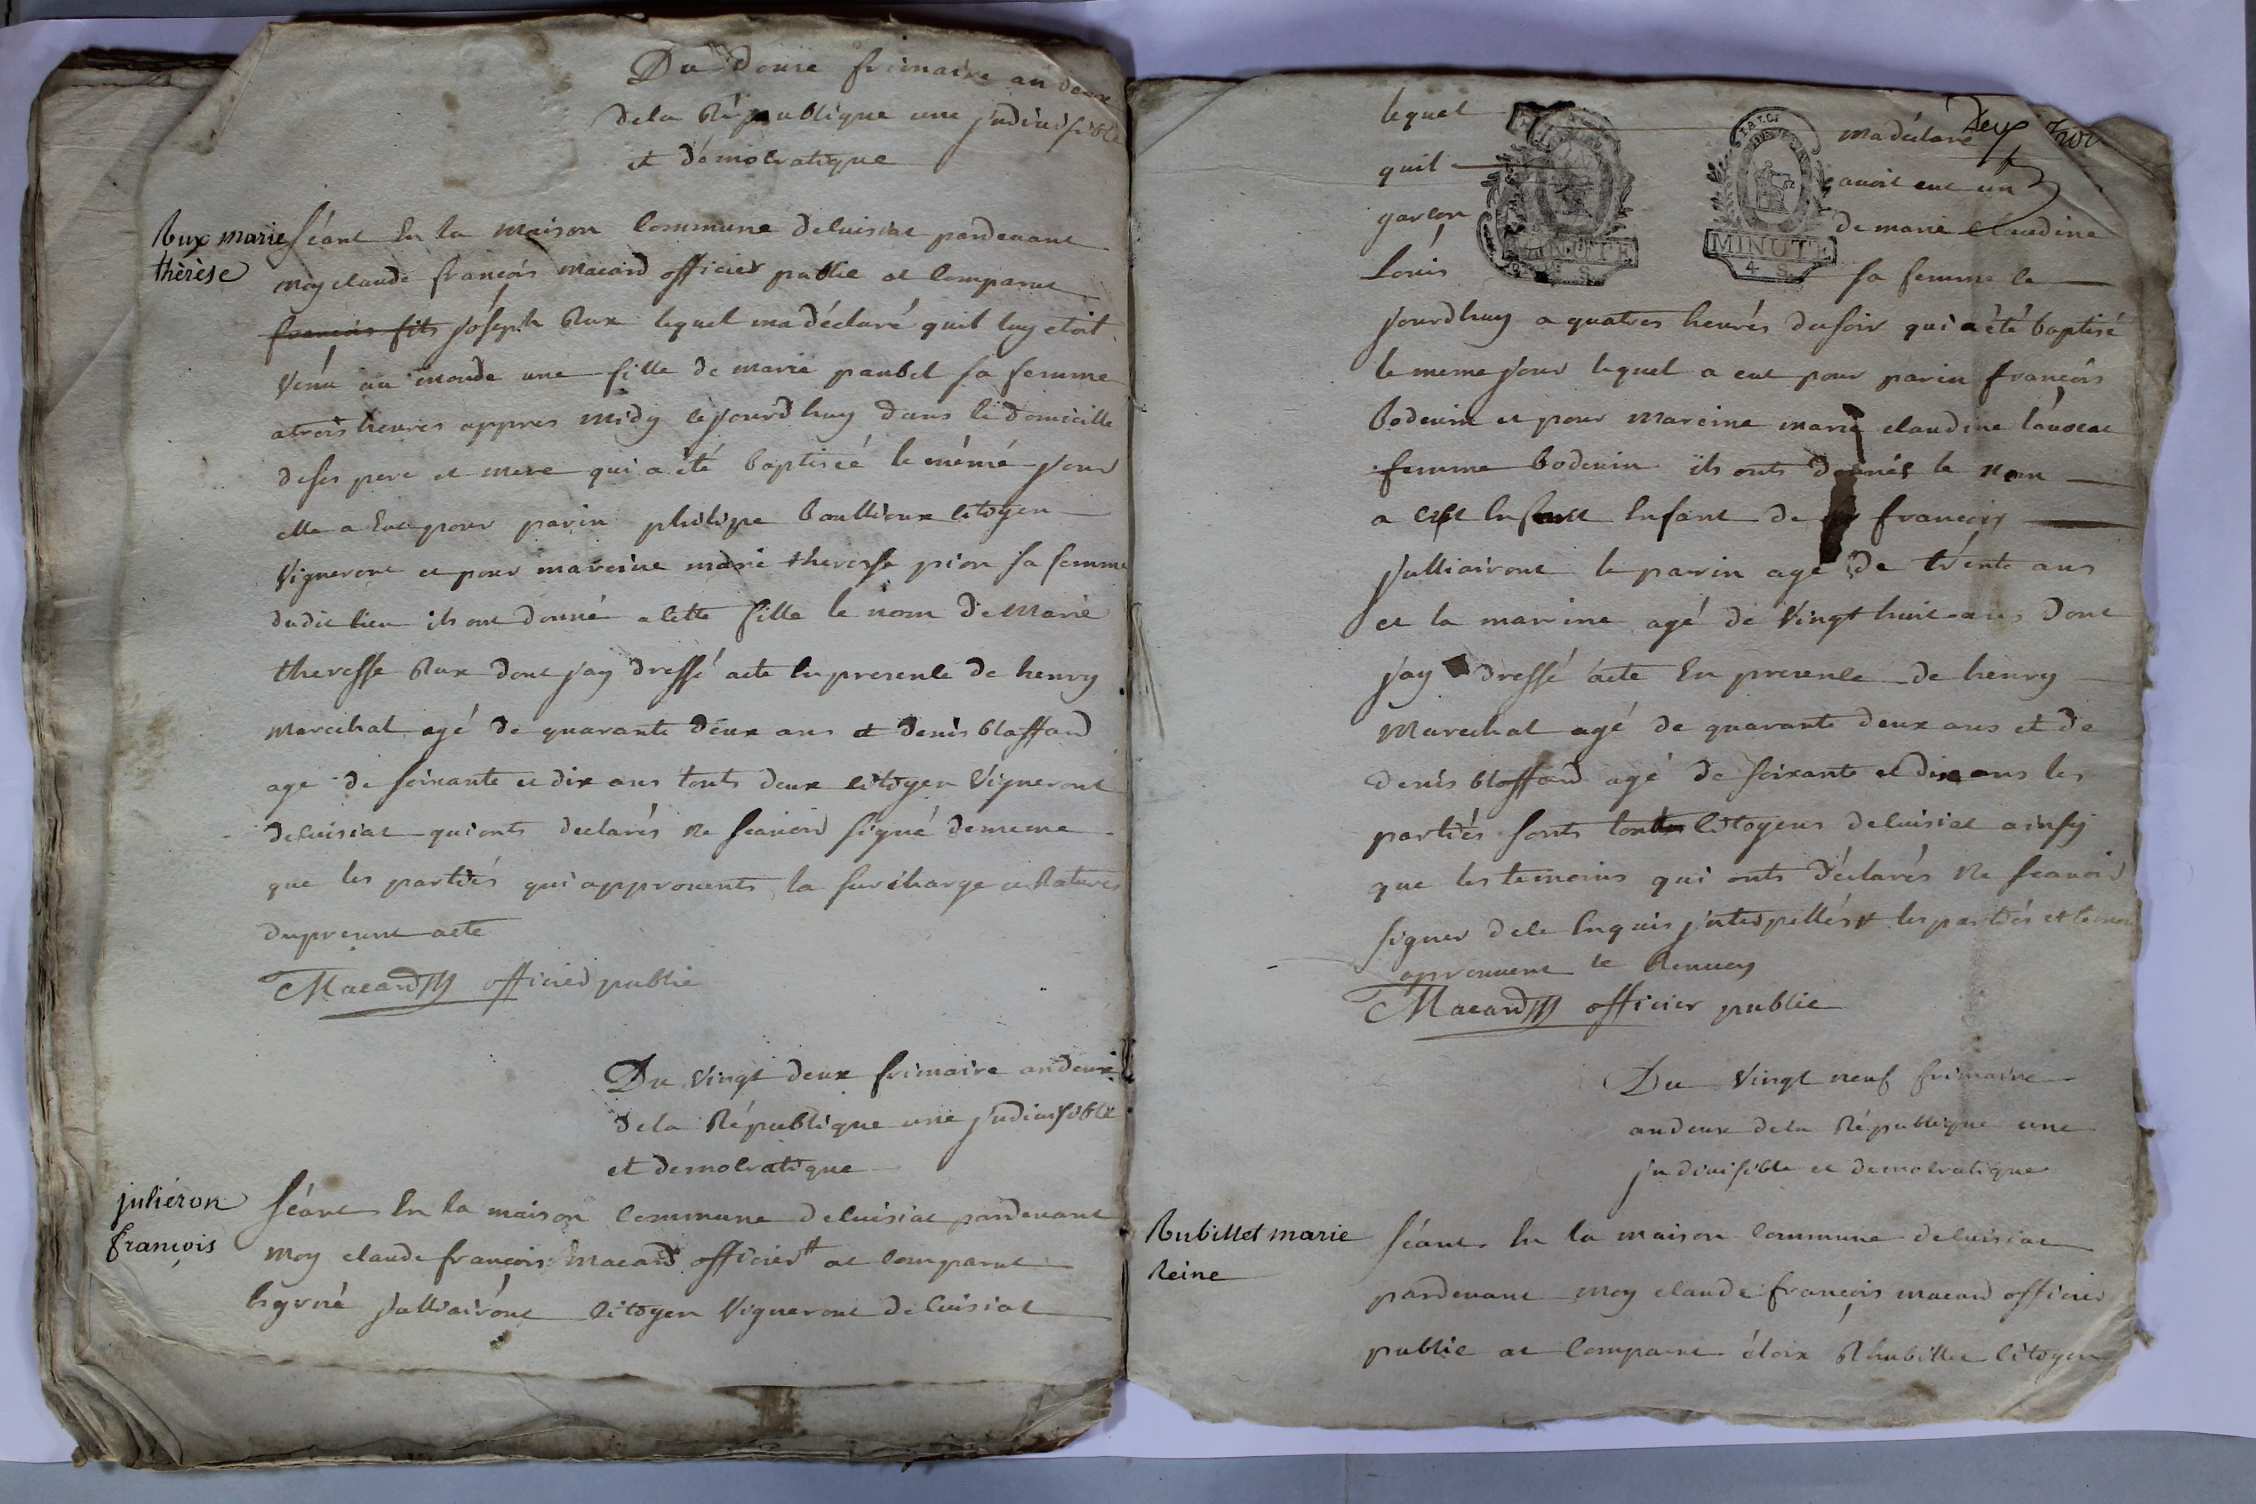 Du douze frimaire an deux
dela République une jndivisible
et démocratique
Rux marie
thérèse
séant En la maison Commune decuisiat pardevant
moy claude françois macard officier public at Comparut
françois fils joseph Rux lequel ma déclaré quil luy etoit
venu au monde une fille de marie paubel sa femme
atrois heures appres midy cejourdhuy dans le domicille
deses pere et mere qui a été baptiséé le mémé jour
elle a Eue pour parin philipe boullioux Citoyen
vigneront et pour mareine marie theresse pion sa femme
dudit lieu ils ont donné a Cette fille le nom de Marie
theresse Rux dont jay dressé acte En presence de henry
marechal agé de quarante deux ans et denis blaffard
age de soixante et dix ans touts deux citoyen Vigneront
decuisiat qui onts declarés Ne scavoir signé dememe
que les partiés qui approuvents la surcharge et Rature
dupresent acte
Macard officier public
Du vingt deux frimaire an deux
dela République une jndivisible
et democratique
juliéron
françois
séant En la maison Commune decuisiat pardevant
moy claude françois macard officier at comparut
jalliairont Citoyen Vigneront de Cuisiat
lequel ma déclaré Deux
quil avoit eut un
garçon de marie Claudine
Louis MINUTE 4. S. sa femme Ce
jourdhuy a quatres heurés dusoir qui a été baptisé
le meme jour lequel a eut pour parin françois
bodenin et pour mareine marie claudine
femme bodenin ils onts donnés le nom
a Enfant de françois
jalliairont le parin age de trénte ans
et la marine agé de Vingt huit ans dont
jay dressé acte En presence de henry
Marechal agé de quarante deux ans et de
denis bloffard agé de soixante et dix ans les
partiés sonts touts Citoyens decuisiat ainsy
que les temoins qui onts déclarés Ne scavoir
signer dece Enquis jnterpellés les partiés et temoin
aprouvent le Renvoy
Macard officier public
Du Vingt neuf frimaire
an deux dela République une
jndivisible et democratique
Rubillet marie
Reine
séant En la maison Commune decuisiat
pardevant moy claude françois macard officier
public at Comparut éloix Rhubillet Citoyen